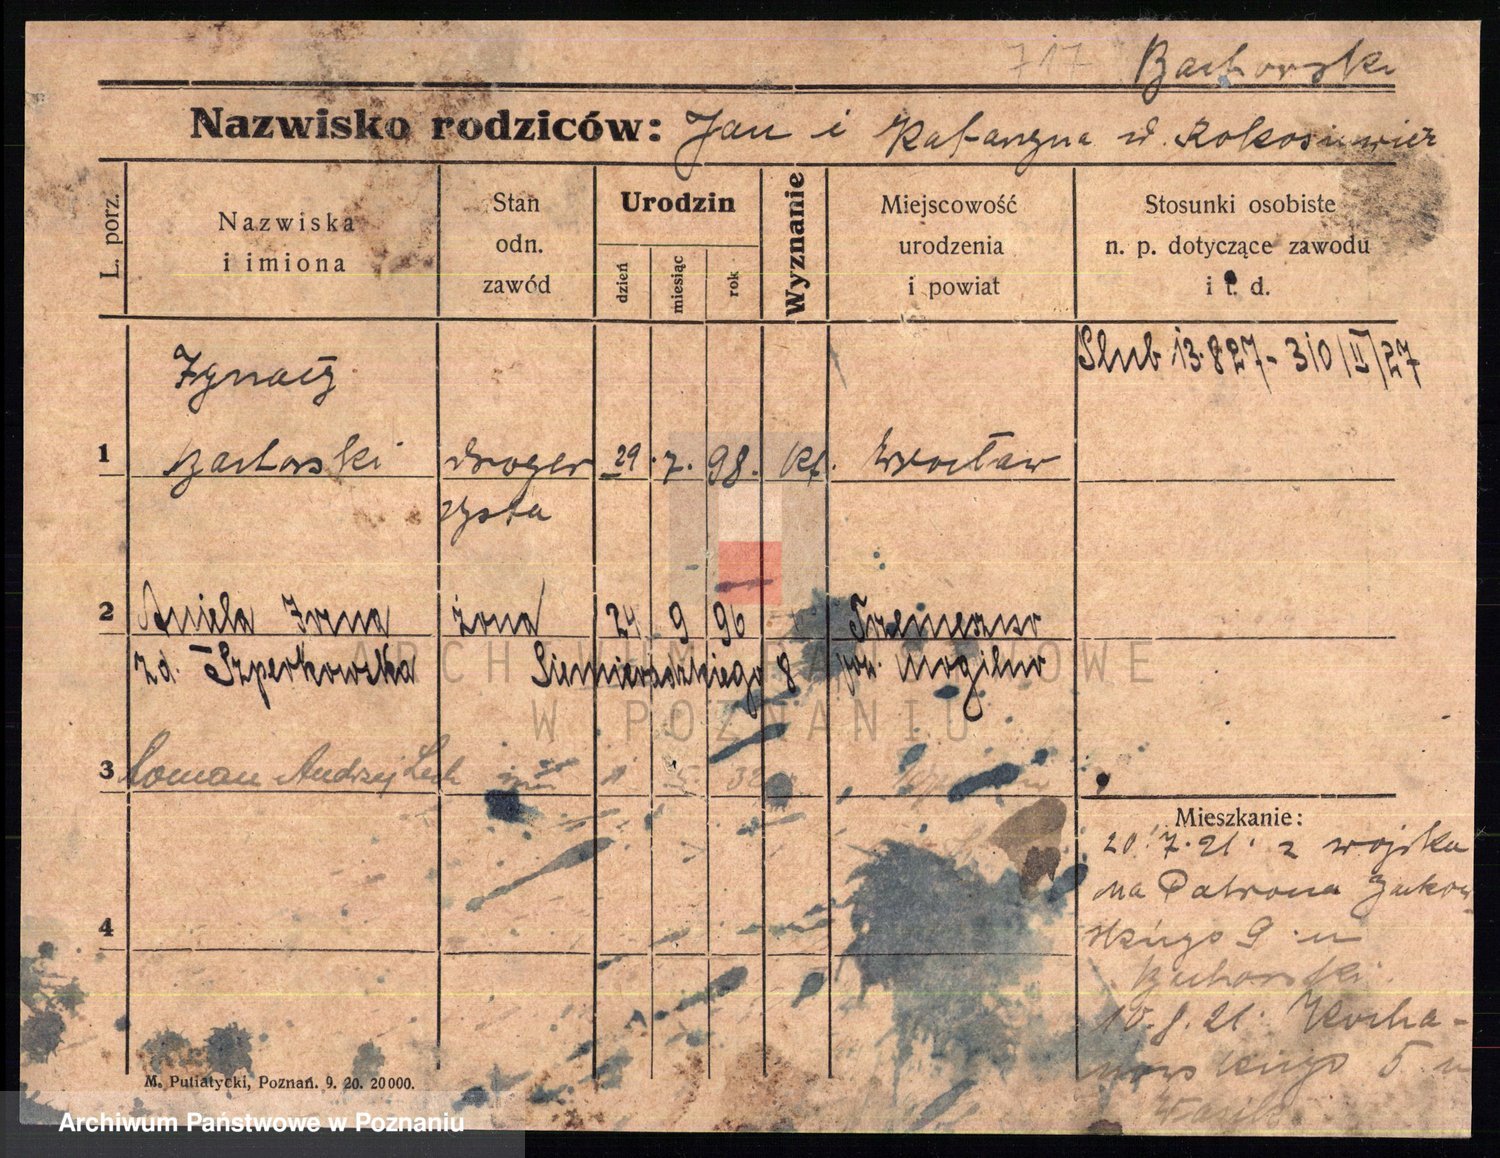 717 Bachorski
Nazwisko rodziców: Jan i Katarzyna d.
L. porz.
Nazwiska
i imiona
Stan
odn.
zawód
Urodzin
dzień
miesiąc
rok
Wyznanie
Miejscowość
urodzenia
i powiat
Stosunki osobiste
n. p. dotyczące zawodu
i t. d.
Ślub 13.8 27 - 310/II/27
Ignacy
1 Bachorski droger 29. 7. 98. kt. Wrocław
zysta
2 Aniela Irena żona 24 9 96 Trzemeszno
zd. Szperkowska Siemieradzkiego 8 pow. Mogilno
3 Roman Andrzej Lech 5 32
Mieszkanie:
20.7.21. z wojska
na Patrona Jackow
skiego 9 u
4
Bachorski
10.8.21. Kocha-
nowskiego 5 u
M. Putiatycki, Poznań. 9. 20. 20000.
ARCHIWUM PAŃSTWOWE
W POZNANIU
Archiwum Państwowe w Poznaniu